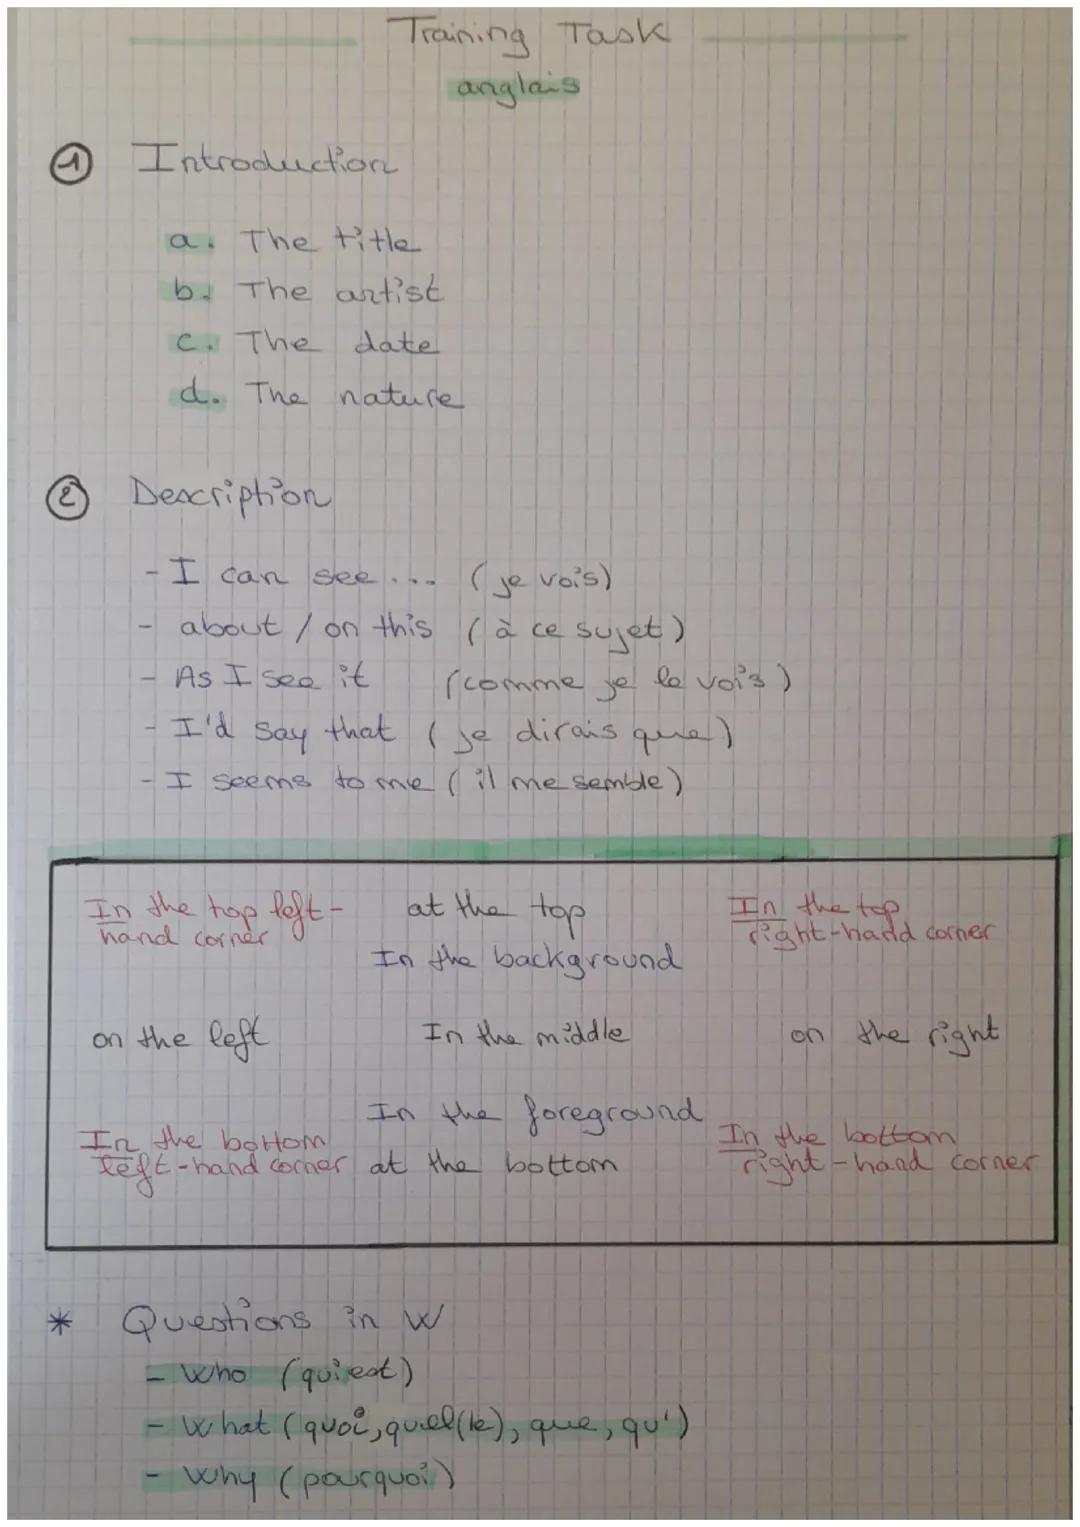 Training Task
anglais
1 Introduction
a. The title
b. The artist
c. The date
d. The nature
2 Description
- I can see ... (je vois)
- about / on this (à ce sujet)
- As I see it (comme je le vois)
- I'd say that (je dirais que)
- I seems to me (il me semble)
In the top left-
hand corner
at the top
In the background
In the top
right-hand corner
on the left
In the middle
on the right
In the foreground
In the bottom
left-hand corner
at the bottom
In the bottom
right-hand corner
* Questions in W
- Who (qui est)
- What (quoi, quel(le), que, qu')
- Why (pourquoi)